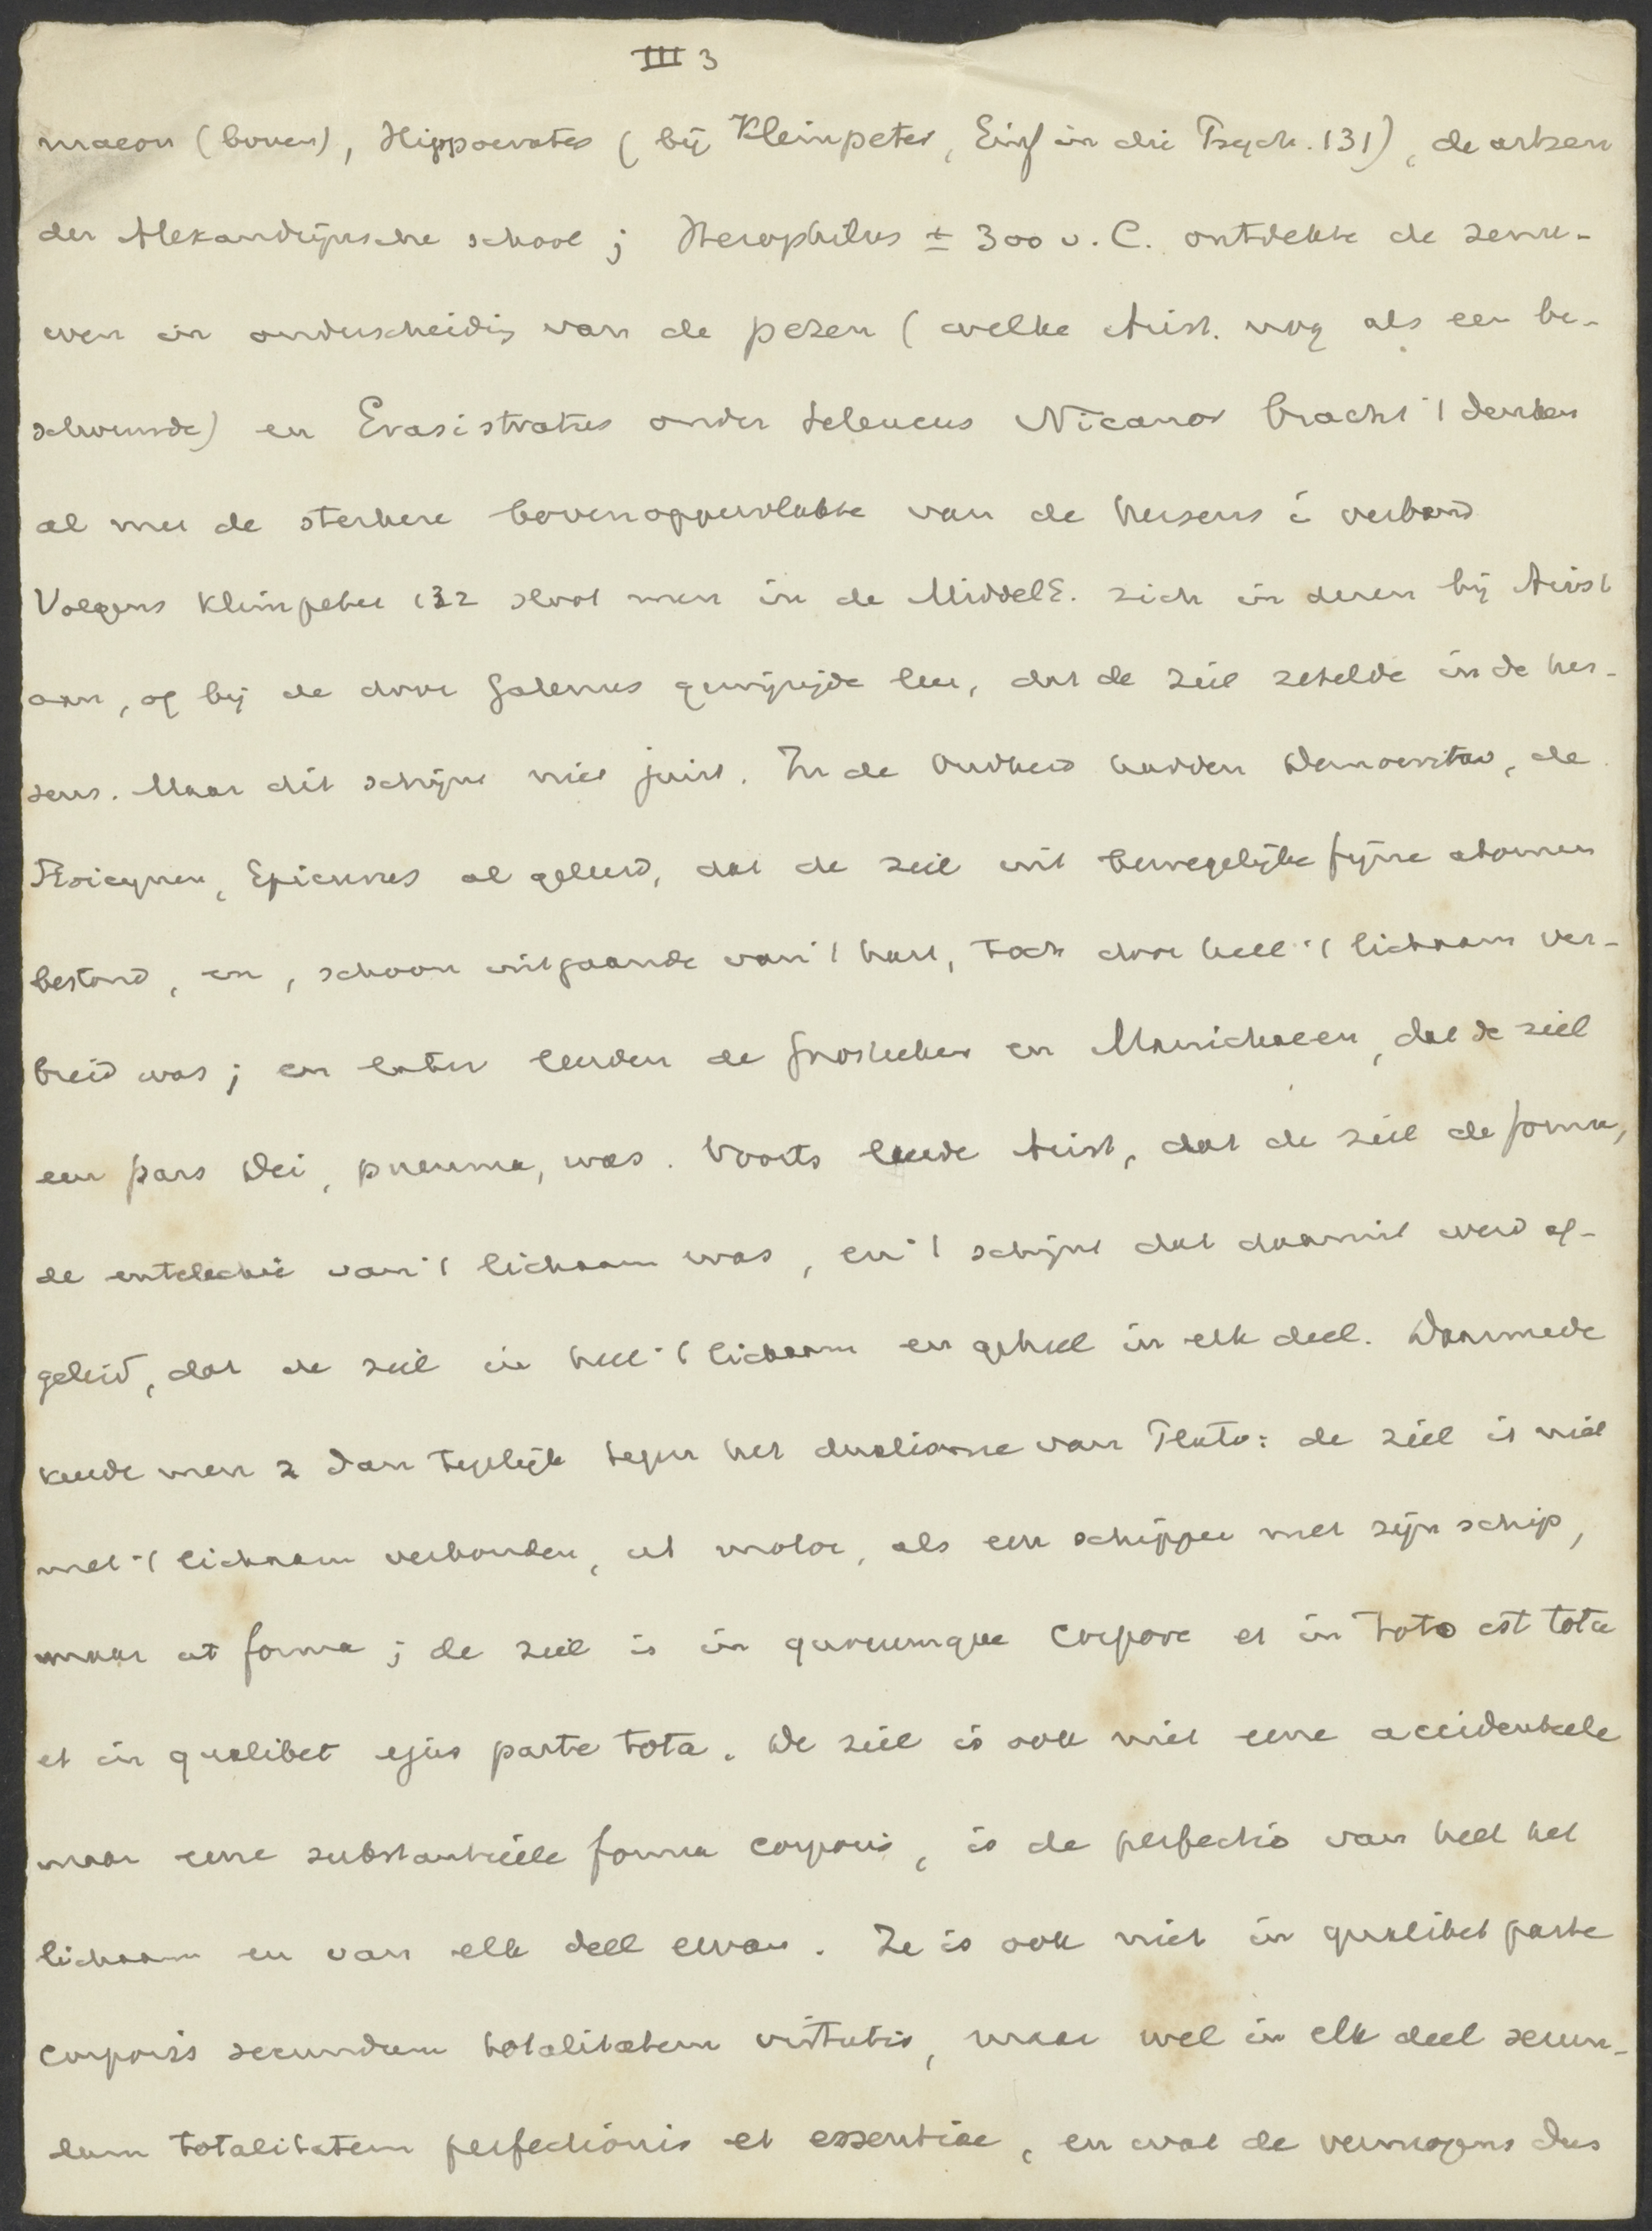 III 3
maeon (boven), Hippocrates (bij Kleinpeter, Einf in die Psych. 131), de artsen
der Alexandrijnsche school; Herophilus ± 300 v. C. ontdekte de zenu-
wen in onderscheidig van de pezen (welke Arist. nog als een be-
schouwde) en Erasistratus onder Seleucus Nicanor bracht 't denken
al met de sterkere bovenoppervlakte van de hersens i verband
Volgens Kleinpeter 132 sloot men in de MiddelE. zich in dezen bij Arist
aan, of bij de door Galenus gewijzijde leer, dat de ziel zetelde in de her-
sens. Maar dit schijnt niet juist. In de Oudheid hadden Democritus, de
Stoicynen, Epicurus al geleerd, dat de ziel uit bewegelijke fijne atomen
bestond, en, schoon uitgaande van 't hart, toch door heel 't lichaam ver-
breid was; en later leerden de Gnostieken en Manichaeen, dat de ziel
een pars Dei, pneuma, was. Voorts leerde Arist, dat de ziel de forma,
de entelechie van 't lichaam was, en 't schijnt dat daaruit werd af-
geleid, dat de ziel in heel 't lichaam en geheel in elk deel. Daarmede
keerde men z dan tegelijk tegen het dualisme van Plato: de ziel is niet
met 't lichaam verbonden, ut motor, als een schipper met zijn schip,
maar ut forma; de ziel is in quocumque corpore et in toto est tota
et in qualibet ejus parte tota. De ziel is ook niet eene accidenteele
maar eene substantieele forma corporis, is de perfectio van heel het
lichaam en van elk deel ervan. Ze is ook niet in qualibet parte
corporis secundum totalitatem virtutis, maar wel in elk deel secun-
dum totalitatem perfectionis et essentiae, en wat de vermogens dus